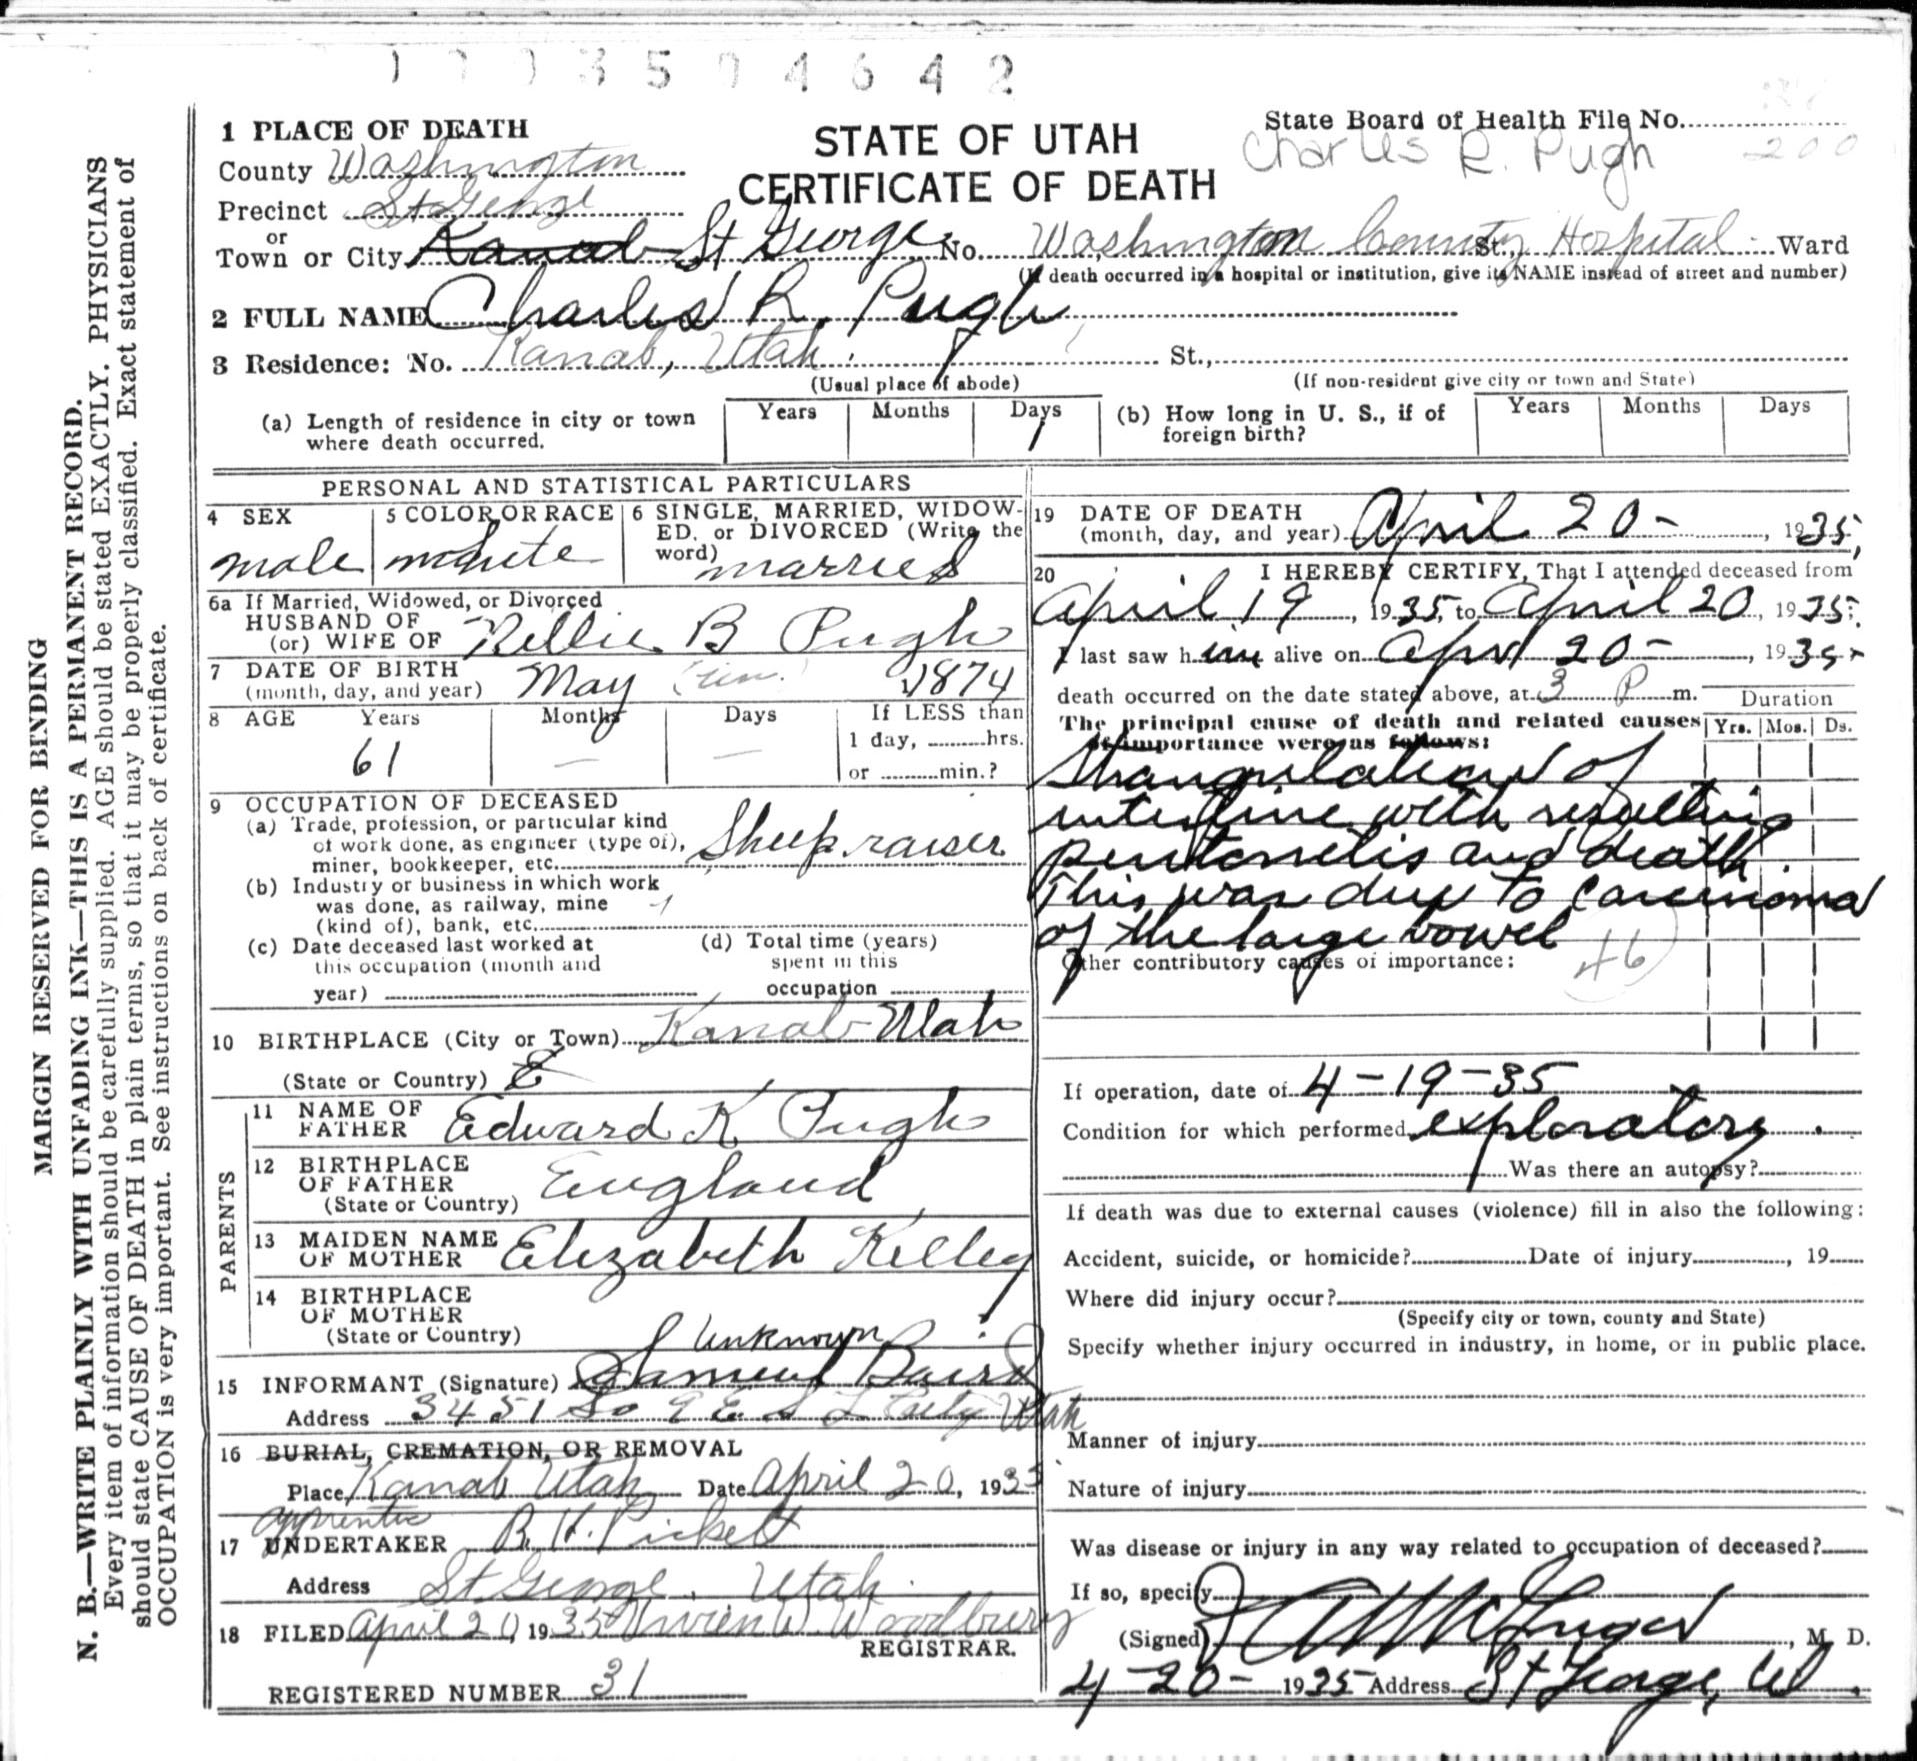 3 5 0 4 6 4 2
MARGIN RESERVED FOR BINDING
N. B.—WRITE PLAINLY WITH UNFADING INK—THIS IS A PERMANENT RECORD.
Every item of information should be carefully supplied. AGE should be stated EXACTLY. PHYSICIANS
should state CAUSE OF DEATH in plain terms, so that it may be properly classified. Exact statement of
OCCUPATION is very important. See instructions on back of certificate.
1 PLACE OF DEATH
County Washington
Precinct St George
or
Town or City Kanab St George
STATE OF UTAH
CERTIFICATE OF DEATH
State Board of Health File No.
Charles R. Pugh 200
No. Washington County St., Hospital Ward
(If death occurred in a hospital or institution, give its NAME instead of street and number)
2 FULL NAME Charles R. Pugh
3 Residence: No. Kanab, Utah St.,
(Usual place of abode) (If non-resident give city or town and State)
(a) Length of residence in city or town where death occurred. Years Months Days 1
(b) How long in U. S., if of foreign birth? Years Months Days
PERSONAL AND STATISTICAL PARTICULARS
4 SEX male
5 COLOR OR RACE white
6 SINGLE, MARRIED, WIDOWED, or DIVORCED (Write the word) married
6a If Married, Widowed, or Divorced
HUSBAND OF
(or) WIFE OF Nellie B Pugh
7 DATE OF BIRTH
(month, day, and year) May 1874
8 AGE Years Months Days If LESS than
61 — — 1 day, hrs.
or min.?
9 OCCUPATION OF DECEASED
(a) Trade, profession, or particular kind
of work done, as engineer (type of),
miner, bookkeeper, etc. Sheep raiser
(b) Industry or business in which work
was done, as railway, mine
(kind of), bank, etc.
(c) Date deceased last worked at
this occupation (month and
year)
(d) Total time (years)
spent in this
occupation
10 BIRTHPLACE (City or Town) Kanab Utah
(State or Country)
PARENTS
11 NAME OF
FATHER Edward K Pugh
12 BIRTHPLACE
OF FATHER
(State or Country) England
13 MAIDEN NAME
OF MOTHER Elizabeth Kelley
14 BIRTHPLACE
OF MOTHER
(State or Country) Unknown
15 INFORMANT (Signature) Samuel Baird
Address 3451 So 9 E. S L City Utah
16 BURIAL, CREMATION, OR REMOVAL
Place Kanab Utah Date April 20, 1935
apprentice
17 UNDERTAKER B. H. Pickett
Address St. George, Utah.
18 FILED April 20, 1935 Woodbury
REGISTRAR.
REGISTERED NUMBER 31
19 DATE OF DEATH
(month, day, and year) April 20 - , 1935,
20 I HEREBY CERTIFY, That I attended deceased from
April 19, 1935, to April 20, 1935;
I last saw him alive on April 20 - , 1935,
death occurred on the date stated above, at 3 P m.
Duration
The principal cause of death and related causes
of importance were as follows: Yrs. Mos. Ds.
Strangulation of
intestine with resulting
peritonitis and death.
This was due to carcinoma
of the large bowel
46
Other contributory causes of importance:
If operation, date of 4-19-35
Condition for which performed exploratory.
Was there an autopsy?
If death was due to external causes (violence) fill in also the following:
Accident, suicide, or homicide? Date of injury , 19
Where did injury occur?
(Specify city or town, county and State)
Specify whether injury occurred in industry, in home, or in public place.
Manner of injury
Nature of injury
Was disease or injury in any way related to occupation of deceased?
If so, specify
(Signed) , M. D.
4-20-1935 Address St George, U.